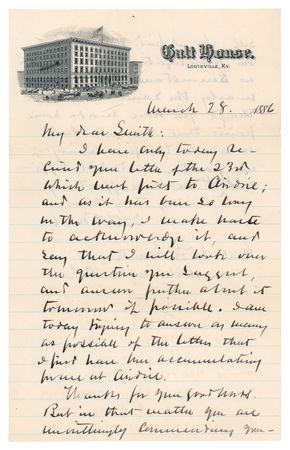 Galt House.
Louisville, Ky.
March 28. 1886
My dear Smith:
I have only today re-
ceived your letter of the 23rd,
which went first to Airdrie;
and as it has been so long
on the way, I make haste
to acknowledge it, and
say that I will look over
the question you suggest,
and answer further about it
tomorrow if possible. I am
today trying to answer as many
as possible of the letters that
I find have been accumulating
for me at Airdrie.
Thanks for your good words.
But in that matter you are
unwittingly commending your-